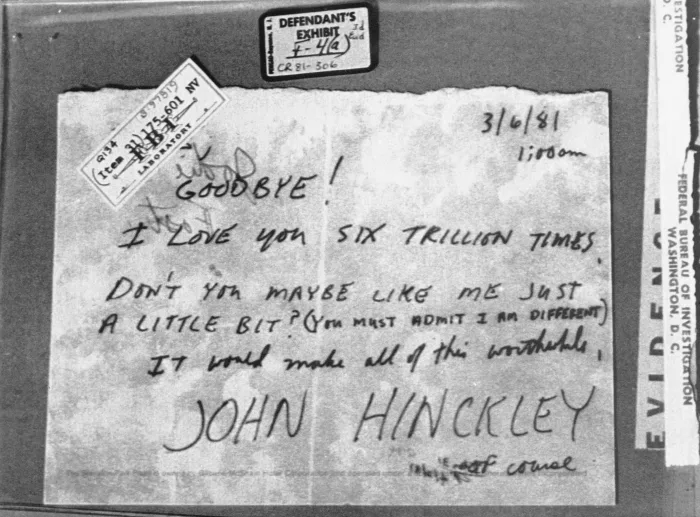 DEFENDANT'S
EXHIBIT
CR 81-306
Q134
(Item 31) 175-601 NV
FBI
LABORATORY
3/6/81
1:00am
GOODBYE!
I LOVE you SIX TRILLION TIMES.
DON'T YOU MAYBE LIKE ME JUST
A LITTLE BIT? (YOU MUST ADMIT I AM DIFFERENT)
IT would make all of this worthwhile.
JOHN HINCKLEY
of course
EVIDENCE
FEDERAL BUREAU OF INVESTIGATION
WASHINGTON, D. C.
ESTIGATION
D. C.